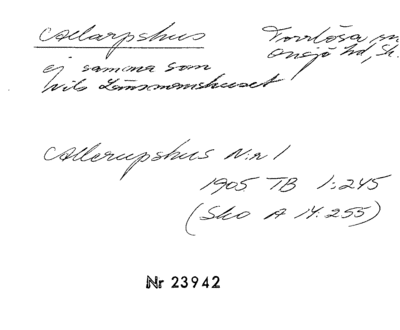 Allarpshus Torrlösa sn
Onsjö hd, Sk.
ej samma som
Nils Länsmanshuset
Allerupshus N:r 1
1905 TB 1:245
(Sko A 14.255)
Nr 23942